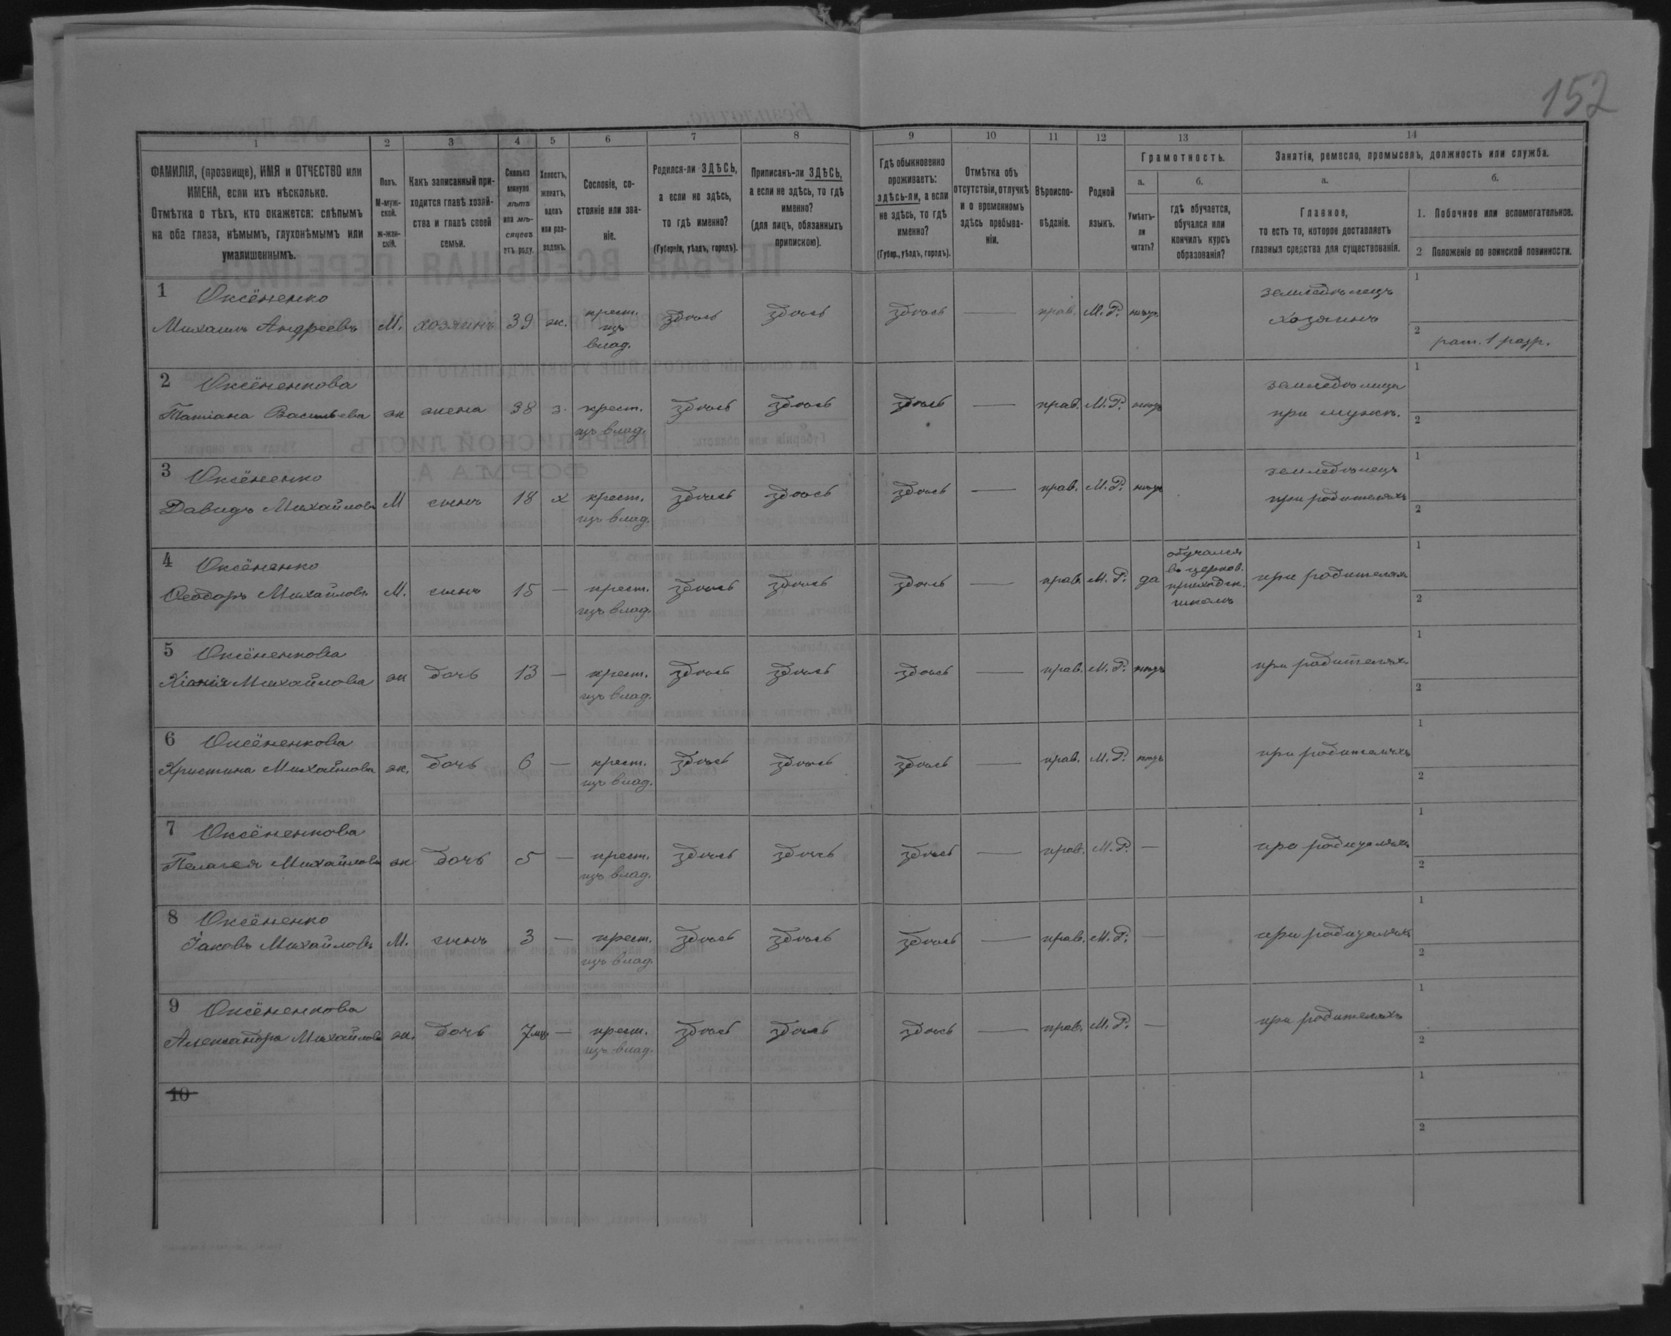 152
1
2
3
4
5
6
7
8
9
10
11
12
13
14
ФАМИЛІЯ, (прозвище), ИМЯ и ОТЧЕСТВО или
ИМЕНА, если ихъ нѣсколько.
Отмѣтка о тѣхъ, кто окажется: слѣпымъ
на оба глаза, нѣмымъ, глухонѣмымъ или
умалишеннымъ.
Полъ.
М-муж-
ской.
Ж-жен-
скій.
Какъ записанный при-
ходится главѣ хозяй-
ства и главѣ своей
семьи.
Сколько
минуло
лѣтъ
или мѣ-
сяцевъ
отъ роду.
Холостъ,
женатъ,
вдовъ
или раз-
веденъ.
Сословіе, со-
стояніе или зва-
ніе.
Родился-ли ЗДѢСЬ,
а если не здѣсь,
то гдѣ именно?
(Губернія, уѣздъ, городъ).
Приписанъ-ли ЗДѢСЬ,
а если не здѣсь, то гдѣ
именно?
(для лицъ, обязанныхъ
припискою).
Гдѣ обыкновенно
проживаетъ:
здѣсь-ли, а если
не здѣсь, то гдѣ
именно?
(Губер., уѣздъ, городъ).
Отмѣтка объ
отсутствіи, отлучкѣ
и о временномъ
здѣсь пребыва-
ніи.
Вѣроиспо-
вѣданіе.
Родной
языкъ.
Грамотность.
а.
б.
Умѣетъ-
ли
читать?
гдѣ обучается,
обучался или
кончилъ курсъ
образованія?
Занятіе, ремесло, промыселъ, должность или служба.
а.
б.
Главное,
то есть то, которое доставляетъ
главныя средства для существованія.
1. Побочное или вспомогательное.
2 Положеніе по воинской повинности.
1 Оксёненко
Михаилъ Андреевъ М. хозяинъ 39 ж. крест. изъ влад. здѣсь здѣсь здѣсь — прав. М.Р. нѣтъ землѣделецъ хозяинъ 1
2 рат. 1 разр.
2 Оксёненкова
Татіана Васильева ж жена 38 з. крест. изъ влад. здѣсь здѣсь здѣсь — прав. М.Р. нѣтъ при мужѣ. 1
2
3 Оксёненко
Давидъ Михайловъ М сынъ 18 х крест. изъ влад. здѣсь здѣсь здѣсь — прав. М.Р. нѣтъ при родителяхъ 1
2
4 Оксёненко
Ѳеодоръ Михайловъ М. сынъ 15 — крест. изъ влад. здѣсь здѣсь здѣсь — прав. М.Р. да обучался въ церков. приходск. школѣ при родителяхъ 1
2
5 Оксёненкова
Михайлова ж дочь 13 — крест. изъ влад. здѣсь здѣсь здѣсь — прав. М.Р. нѣтъ при родителяхъ 1
2
6 Оксёненкова
Христина Михайлова ж. дочь 6 — крест. изъ влад. здѣсь здѣсь здѣсь — прав. М.Р. нѣтъ при родителяхъ 1
2
7 Оксёненкова
Пелагея Михайлова ж дочь 5 — крест. изъ влад. здѣсь здѣсь здѣсь — прав. М.Р. — при родителяхъ 1
2
8 Оксёненко
Іаковъ Михайловъ М. сынъ 3 — крест. изъ влад. здѣсь здѣсь здѣсь — прав. М.Р. — при родителяхъ 1
2
9 Оксёненкова
Александра Михайлова ж. дочь 7 мѣс. — крест. изъ влад. здѣсь здѣсь здѣсь — прав. М.Р. — при родителяхъ 1
2
10
1
2